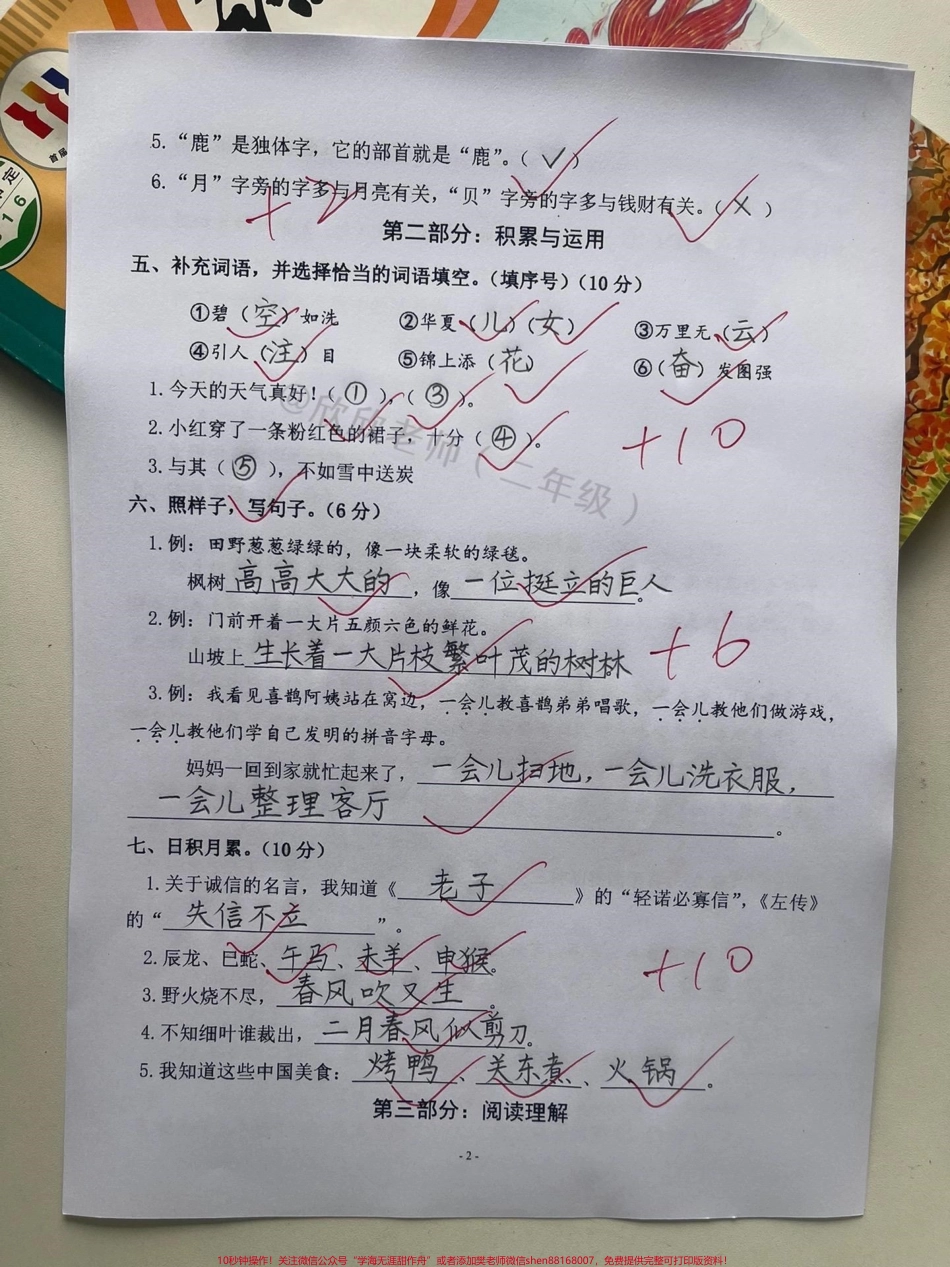 首届
定
16
5.“鹿”是独体字，它的部首就是“鹿”。（ √ ）
6.“月”字旁的字多与月亮有关，“贝”字旁的字多与钱财有关。（ × ）
+2
第二部分：积累与运用
五、补充词语，并选择恰当的词语填空。（填序号）（10分）
①碧（空）如洗 ②华夏（儿）（女） ③万里无（云）
④引人（注）目 ⑤锦上添（花） ⑥（奋）发图强
1.今天的天气真好！（ ① ），（ ③ ）。
2.小红穿了一条粉红色的裙子，十分（ ④ ）。
+10
3.与其（ ⑤ ），不如雪中送炭
@欣欣老师（二年级）
六、照样子，写句子。（6分）
1.例：田野葱葱绿绿的，像一块柔软的绿毯。
枫树高高大大的，像一位挺立的巨人。
2.例：门前开着一大片五颜六色的鲜花。
山坡上生长着一大片枝繁叶茂的树林。
+6
3.例：我看见喜鹊阿姨站在窝边，一会儿教喜鹊弟弟唱歌，一会儿教他们做游戏，
一会儿教他们学自己发明的拼音字母。
妈妈一回到家就忙起来了，一会儿扫地，一会儿洗衣服，
一会儿整理客厅。
七、日积月累。（10分）
1.关于诚信的名言，我知道《老子》的“轻诺必寡信”，《左传》
的“失信不立”。
2.辰龙、巳蛇、午马、未羊、申猴。
+10
3.野火烧不尽，春风吹又生。
4.不知细叶谁裁出，二月春风似剪刀。
5.我知道这些中国美食：烤鸭、关东煮、火锅。
第三部分：阅读理解
- 2 -
10秒钟操作！关注微信公众号“学海无涯甜作舟”或者添加樊老师微信shen88168007，免费提供完整可打印版资料！